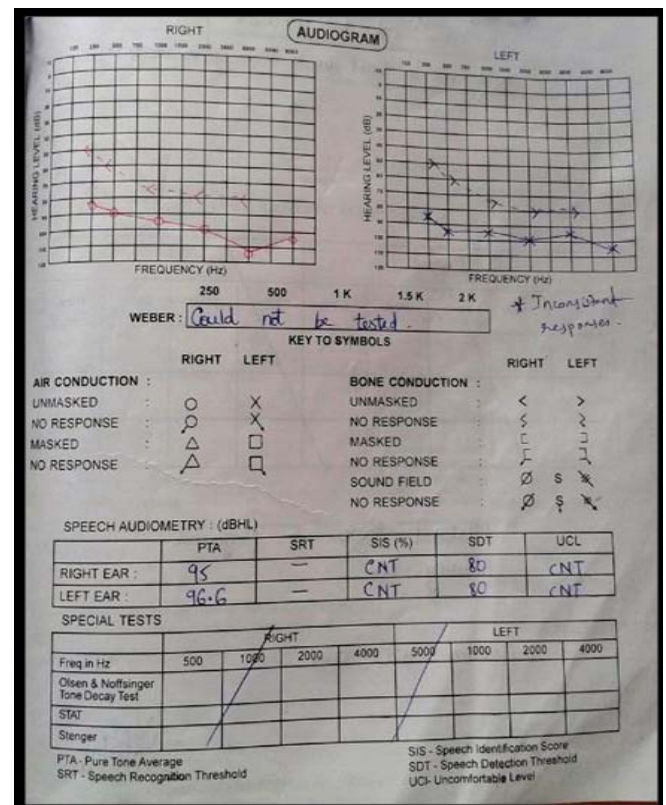 AUDIOGRAM
RIGHT
LEFT
HEARING LEVEL (dB)
HEARING LEVEL (dB)
FREQUENCY (Hz)
FREQUENCY (Hz)
250 500 1 K 1.5 K 2 K
WEBER : Could not be tested.
* Inconsistent
responses.
KEY TO SYMBOLS
RIGHT LEFT
RIGHT LEFT
AIR CONDUCTION :
BONE CONDUCTION :
UNMASKED : O X
UNMASKED : < >
NO RESPONSE :
NO RESPONSE :
MASKED : △ □
MASKED : [ ]
NO RESPONSE :
NO RESPONSE :
SOUND FIELD : Ø S
NO RESPONSE : Ø S
SPEECH AUDIOMETRY : (dBHL)
PTA SRT SIS (%) SDT UCL
RIGHT EAR : 95 — CNT 80 CNT
LEFT EAR : 96.6 — CNT 80 CNT
SPECIAL TESTS
RIGHT LEFT
Freq in Hz 500 1000 2000 4000 5000 1000 2000 4000
Olsen & Noffsinger
Tone Decay Test
STAT
Stenger
PTA - Pure Tone Average
SRT - Speech Recognition Threshold
SIS - Speech Identification Score
SDT - Speech Detection Threshold
UCl- Uncomfortable Level